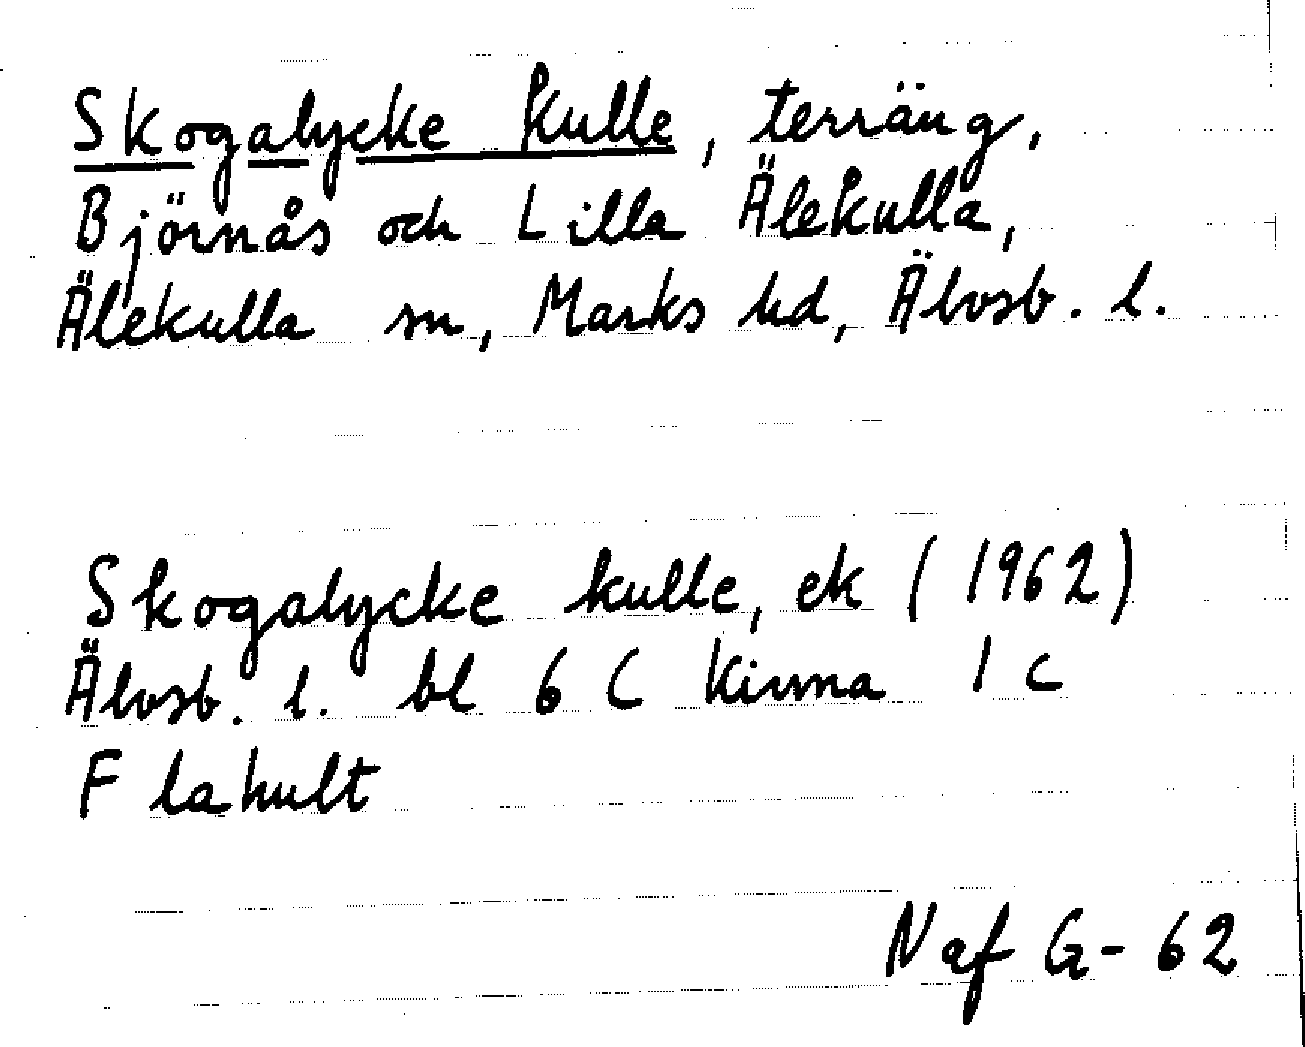 Skogalycke kulle, terräng,
Björnås och Lilla Älekulla,
Älekulla sn, Marks hd, Älvsb. l.
Skogalycke kulle, ek (1962)
Älvsb. l. bl 6 C Kinna 1 c
Flahult
Naf G-62